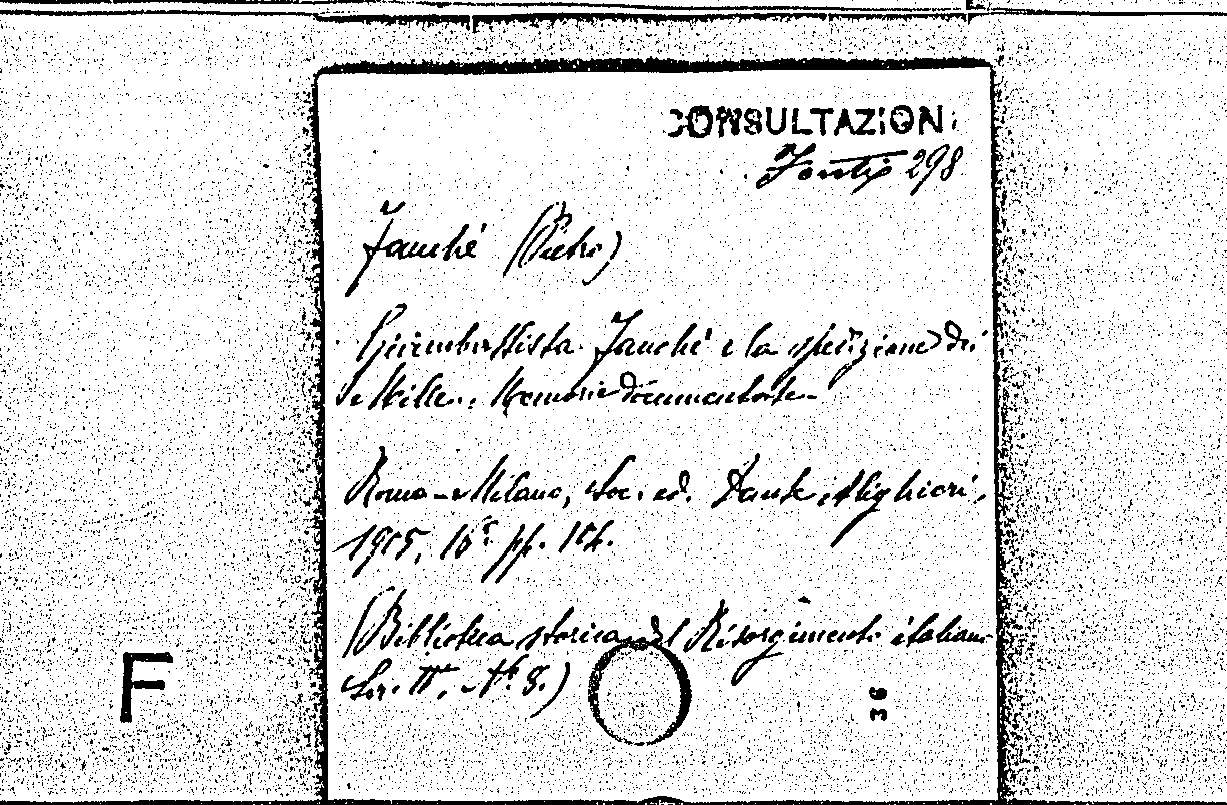 CONSULTAZIONI
Fauché (Pietro)
Giambattista Fauché e la spedizione dei
Mille. Memorie documentate
Roma-Milano, Soc. ed. Dante Alighieri,
1905, 16° pp.
(Biblioteca storica del Risorgimento italiano
Ser. IV. N° 8.)
F
36